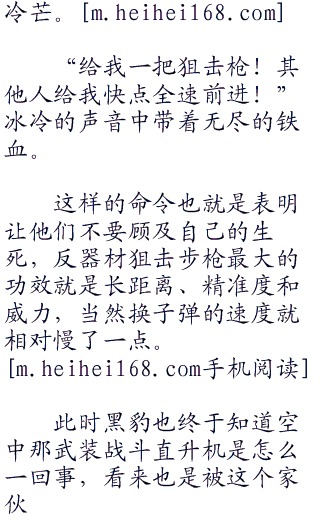 冷芒。[m.heihei168.com]
“给我一把狙击枪！其
他人给我快点全速前进！”
冰冷的声音中带着无尽的铁
血。
这样的命令也就是表明
让他们不要顾及自己的生
死，反器材狙击步枪最大的
功效就是长距离、精准度和
威力，当然换子弹的速度就
相对慢了一点。
[m.heihei168.com手机阅读]
此时黑豹也终于知道空
中那武装战斗直升机是怎么
一回事，看来也是被这个家
伙